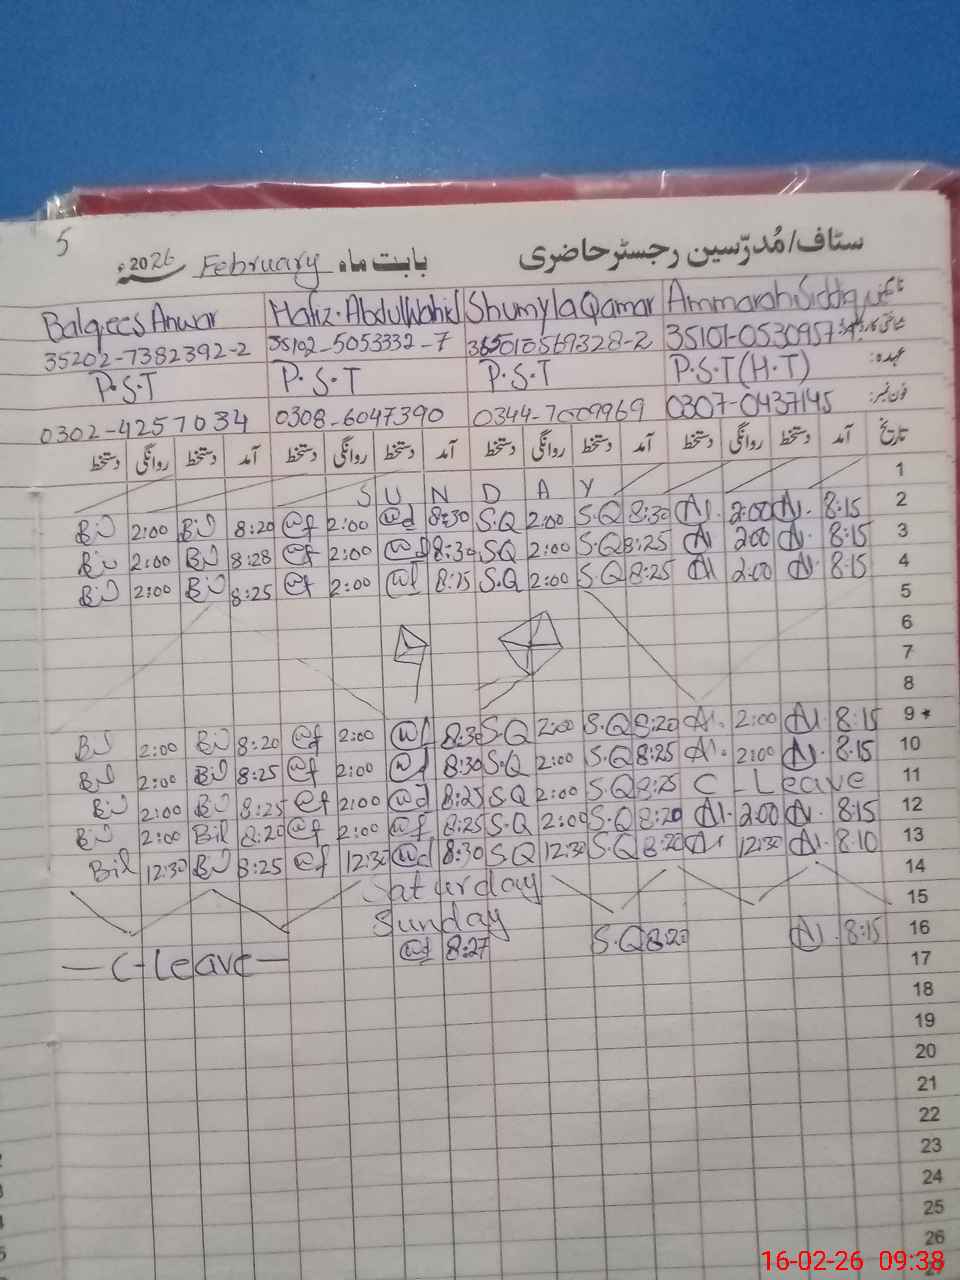 5
سٹاف/مُدرّسین رجسٹر حاضری بابت ماہ February 2026ء
Balqees Anwar Hafiz. Abdul Wahid Shumyla Qamar Ammarah Siddiq
35202-7382392-2 35102-5053332-7 35101-0530957
P.S.T P.S.T P.S.T P.S.T (H.T) عہدہ:
0302-4257034 0308-6047390 0344-7009969 0307-0437145 فون نمبر:
تاریخ آمد دستخط روانگی دستخط آمد دستخط روانگی دستخط آمد دستخط روانگی دستخط آمد دستخط روانگی دستخط
1
SUNDAY
2:00 8:20 2:00 8:30 S.Q 2:00 S.Q 8:30 2:00 8:15 2
2:00 8:28 2:00 8:30 S.Q 2:00 S.Q 8:25 2:00 8:15 3
2:00 8:25 2:00 8:15 S.Q 2:00 S.Q 8:25 2:00 8:15 4
5
6
7
8
2:00 8:20 2:00 8:30 S.Q 2:00 S.Q 8:20 2:00 8:15 9*
2:00 8:25 2:00 8:30 S.Q 2:00 S.Q 8:25 2:00 8:15 10
2:00 8:25 2:00 8:25 S.Q 2:00 S.Q 8:25 C-Leave 11
2:00 Bil 8:20 2:00 8:25 S.Q 2:00 S.Q 8:20 2:00 8:15 12
Bil 12:30 8:25 12:30 8:30 S.Q 12:30 S.Q 8:20 12:30 8:10 13
Saturday 14
Sunday 15
C-Leave 8:27 S.Q 8:20 8:15 16
17
18
19
20
21
22
23
24
25
26
16-02-26 09:38